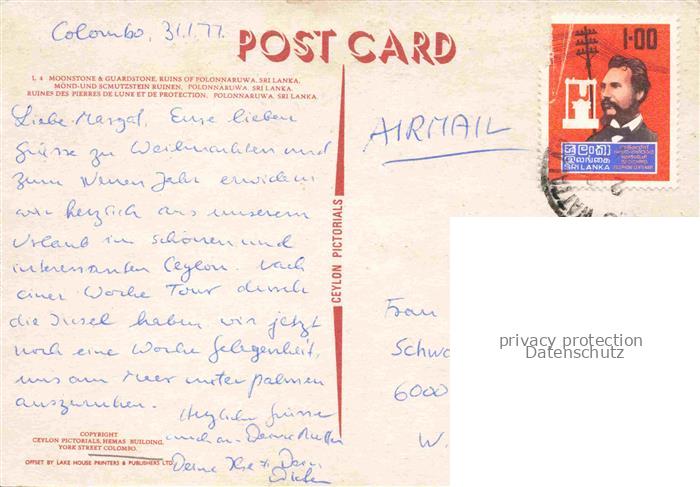 Colombo, 31.1.77.
POST CARD
L 4 MOONSTONE & GUARDSTONE, RUINS OF POLONNARUWA, SRI LANKA.
MÖND-UND SCHMUTZSTEIN RUINEN, POLONNARUWA, SRI LANKA.
RUINES DES PIERRES DE LUNE ET DE PROTECTION, POLONNARUWA, SRI LANKA.
Liebe Margot, Eure lieben
Grüsse zu Weihnachten und
zum Neuen Jahr erwidern
wir herzlich aus unserem
Urlaub im schönen und
interessanten Ceylon. Nach
einer Woche Tour durch
die Insel haben wir jetzt
noch eine Woche Gelegenheit,
uns am Meer unter Palmen
auszuruhen.
Herzliche Grüsse
auch an Deine Mutter
Deine
COPYRIGHT
CEYLON PICTORIALS, HEMAS BUILDING,
YORK STREET COLOMBO.
OFFSET BY LAKE HOUSE PRINTERS & PUBLISHERS LTD
CEYLON PICTORIALS
AIRMAIL
1·00
ශ්‍රී ලංකා
இலங்கை
SRI LANKA
Frau
Schw
6000
W.
privacy protection
Datenschutz